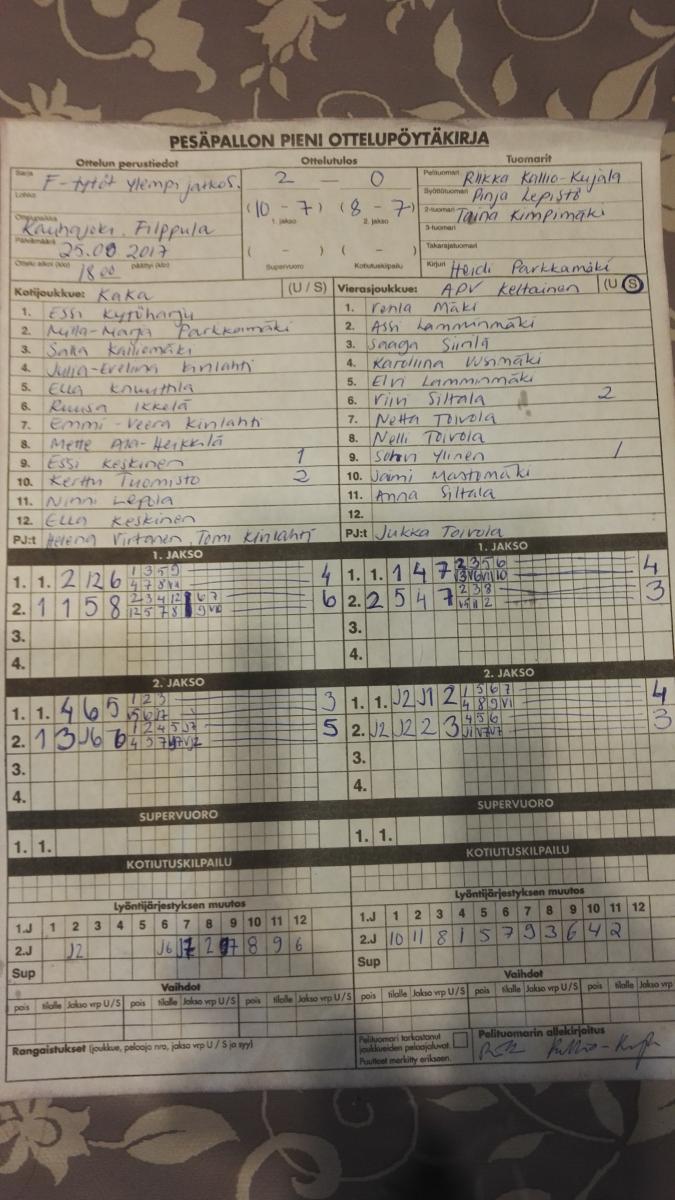 PESÄPALLON PIENI OTTELUPÖYTÄKIRJA
Ottelun perustiedot Ottelutulos Tuomarit
Sarja F-tytöt ylempi jatkos.
Lohko
Ottelupaikka Kauhajoki, Filppula
Päivämäärä 25.08 2017
Ottelu alkoi (klo) 18 00 päättyi (klo)
2 — 0
(10 - 7) (8 - 7)
1. jakso 2. jakso
( - ) ( - )
Supervuoro Kotiutuskilpailu
Pelituomari Riikka Kallio-Kujala
Syöttötuomari Pinja Lepistö
2-tuomari Taina Kimpimäki
3-tuomari
Takarajatuomari
Kirjuri Heidi Parkkamäki
Kotijoukkue: KaKa (U / S)
1. Essi Kytöharju
2. Milla-Marja Parkkamäki
3. Salla Kalliomäki
4. Julia-Eveliina Kinlahti
5. Ella Knuuttila
6. Ruusa Ikkelä
7. Emmi-Veera Kinlahti
8. Mette Ala-Heikkilä
9. Essi Keskinen 1
10. Kerttu Tuomisto 2
11. Ninni Lepola
12. Ella Keskinen
PJ:t Helena Virtanen, Tomi Kinlahti
Vierasjoukkue: APV Keltainen (U S)
1. Mäki
2. Assi Lamminmäki
3. Saaga
4. Karoliina
5. Elvi Lamminmäki
6. Viivi Siltala 2
7. Netta Toivola
8. Nelli Toivola
9. Ylinen 1
10. Jaimi Mastomäki
11. Anna Siltala
12.
PJ:t Jukka Toivola
1. JAKSO
1. 1. 2 12 6 1 3 5 9 4
4 7 8
2. 1 1 5 8 2 3 4 12 6 7 6
12 5 7 8
3.
4.
1. JAKSO
1. 1. 1 4 7 2 3 5 6 4
2. 2 5 4 7 2 3 8 3
3.
4.
2. JAKSO
1. 1. 4 6 5 1 2 3 3
2. 1 3 J6 6 1 2 4 5 J7 5
3.
4.
2. JAKSO
1. 1. J2 J1 2 1 5 6 7 4
4 8 9 V1
2. J2 J2 2 3 4 5 6 3
3.
4.
SUPERVUORO
1. 1.
SUPERVUORO
1. 1.
KOTIUTUSKILPAILU
KOTIUTUSKILPAILU
Lyöntijärjestyksen muutos
1.J 1 2 3 4 5 6 7 8 9 10 11 12
2.J J2 J6 J7 2 8 9 6
Sup
Lyöntijärjestyksen muutos
1.J 1 2 3 4 5 6 7 8 9 10 11 12
2.J 10 11 8 1 5 7 9 3 6 4 2
Sup
Vaihdot
pois tilalle Jakso vrp U / S pois tilalle Jakso vrp U / S pois tilalle Jakso vrp U / S
Vaihdot
pois tilalle Jakso vrp U / S pois tilalle Jakso vrp U / S pois tilalle Jakso vrp U /
Rangaistukset (joukkue, pelaaja nro, jakso vrp U / S ja syy)
Pelituomari tarkastanut
joukkueiden pelaajaluvat.
Puutteet merkitty erikseen.
Pelituomarin allekirjoitus